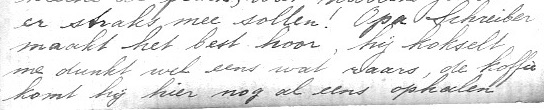 er straks mee sollen! Opa Schreiber
maakt het best hoor, hij hokselt
me dunkt wel eens wat raars, de koffie
komt hij hier nog al eens ophalen